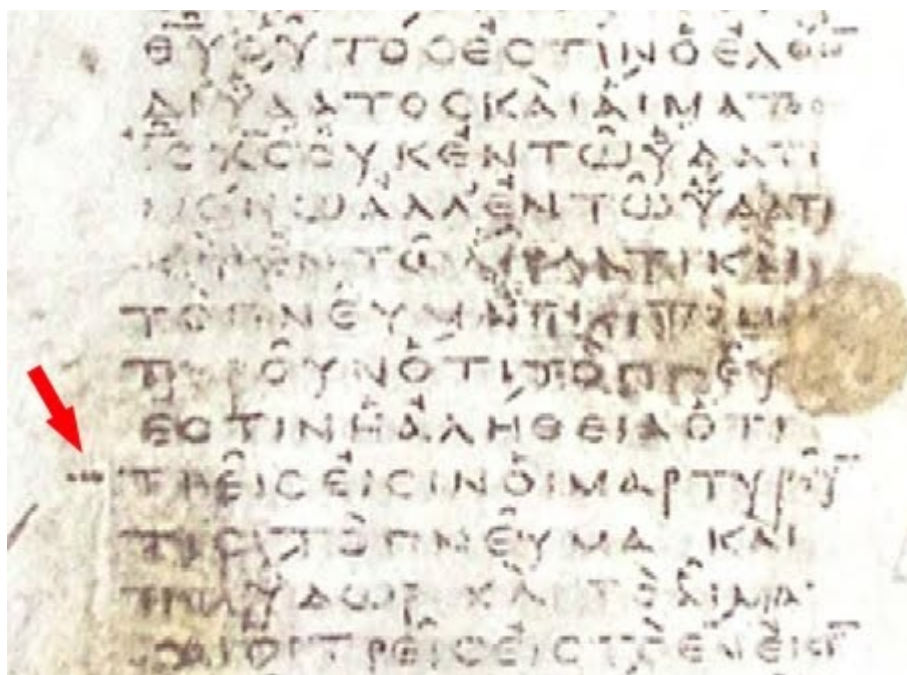 ΘΥΟΥΤΟϹΕϹΤΙΝΟΕΛΘΩ
ΔΙΥΔΑΤΟϹΚΑΙΑΙΜΑΤΟϹ
ΙϹΧϹΟΥΚΕΝΤΩΥΔΑΤΙ
ΜΟΝΩΑΛΛΕΝΤΩΥΔΑΤΙ
ΚΑΙΕΝΤΩΑΙΜΑΤΙΚΑΙ
ΤΟΠΝΕΥΜΑ
ΤΥΡΟΥΝΟΤΙΤΟΠΝΕΥ
ΕϹΤΙΝΗΑΛΗΘΕΙΑΟΤΙ
ΤΡΕΙϹΕΙϹΙΝΟΙΜΑΡΤΥΡΟΥ
ΤΕϹΤΟΠΝΕΥΜΑ ΚΑΙ
ΤΟΥΔΩΡΚΑΙΤΟΑΙΜΑ
ΚΑΙΟΙΤΡΕΙϹΕΙϹΤΟΕΝΕΙϹΙ